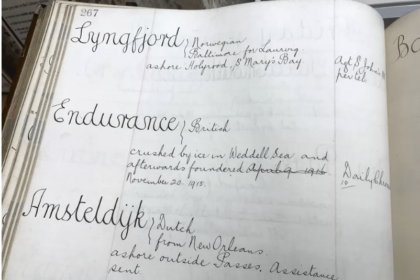 267
Lyngfjord } Norwegian
Baltimore for Laurvig
ashore Holyrood, S Mary's Bay.
Agt S John's
per tel.
Endurance } British
crushed by ice in Weddell Sea and
afterwards foundered April 9 1916
November 20. 1915.
Daily Chron
Amsteldijk } Dutch
from New Orleans
ashore outside Passes. Assistance
sent.